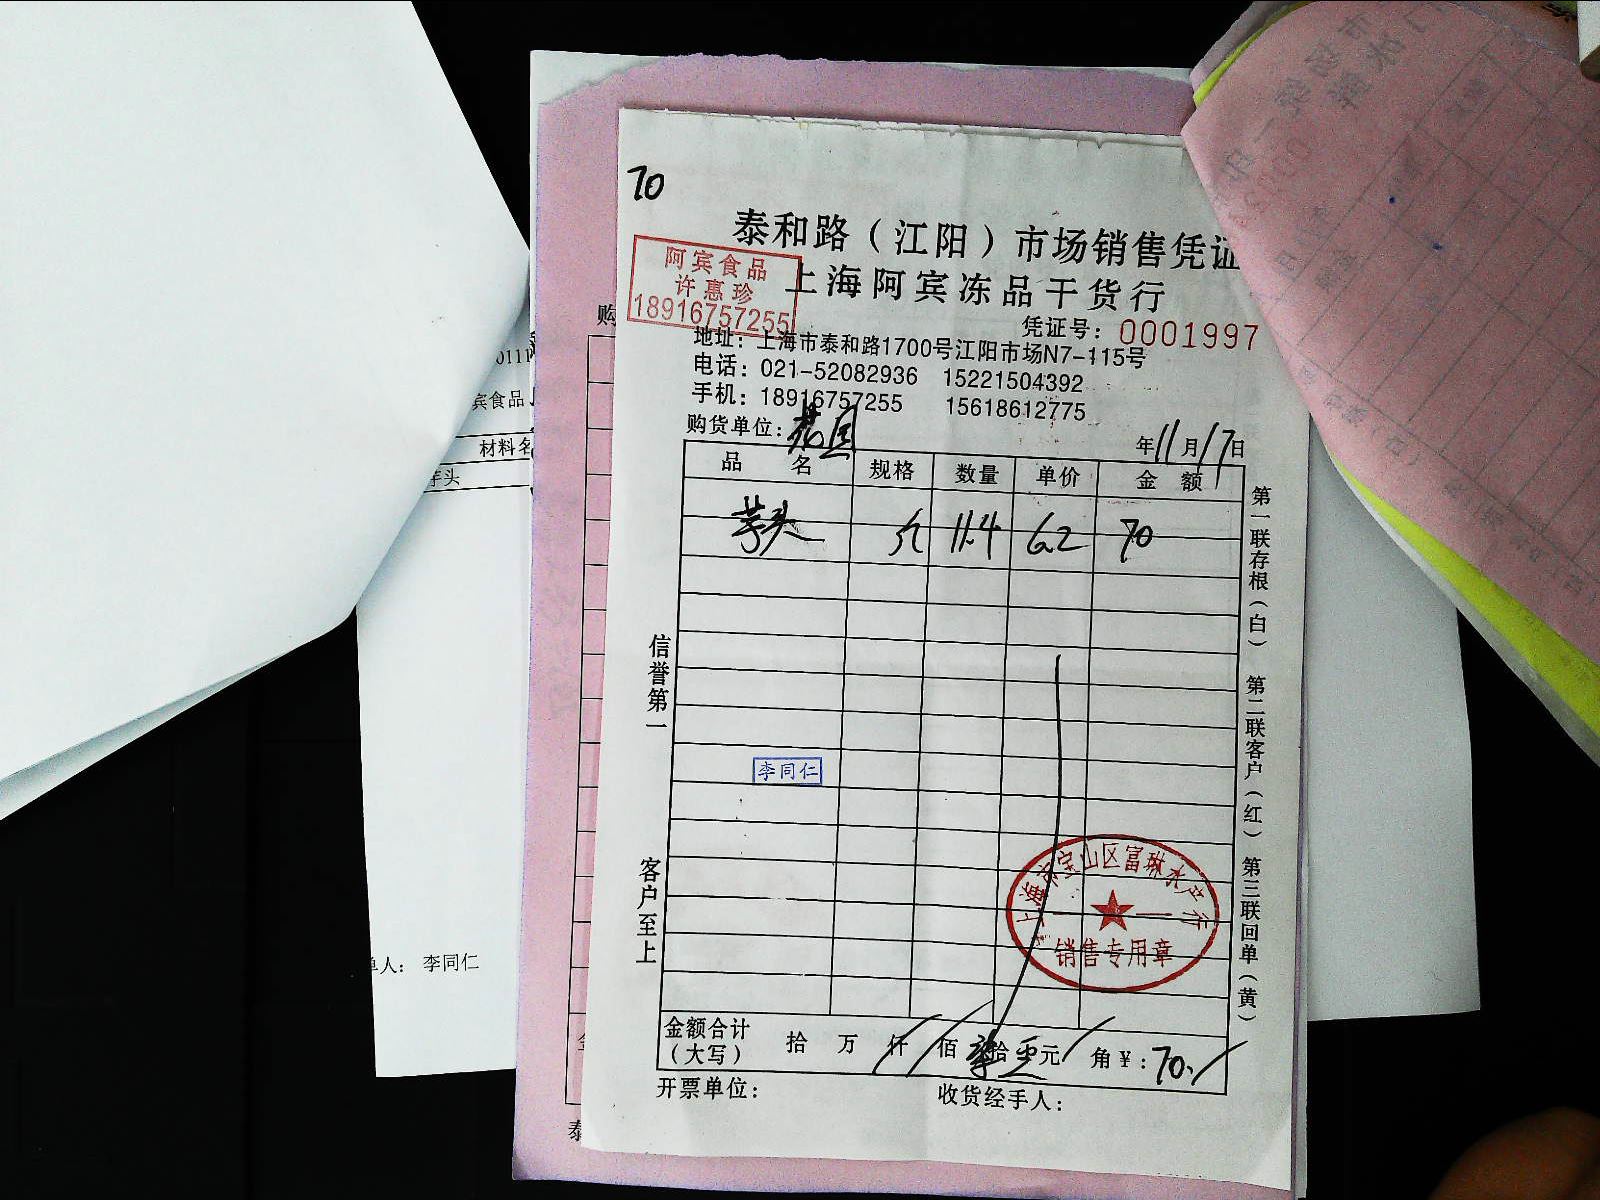 70
泰和路（江阳）市场销售凭证
上海阿宾冻品干货行
阿宾食品
许惠珍
18916757255
凭证号：0001997
地址：上海市泰和路1700号江阳市场N7-115号
电话：021-52082936 15221504392
手机：18916757255 15618612775
购货单位：
年11月17日
品名 规格 数量 单价 金额
芋头 11.4 6.2 70
信誉第一
客户至上
第一联存根（白） 第二联客户（红） 第三联回单（黄）
李同仁
上海市宝山区富琳水产行
销售专用章
金额合计（大写） 拾 万 仟 佰 柒拾 元 角 ¥：70.
开票单位：
收货经手人：
购
宾食品
材料名
芋头
单人：李同仁